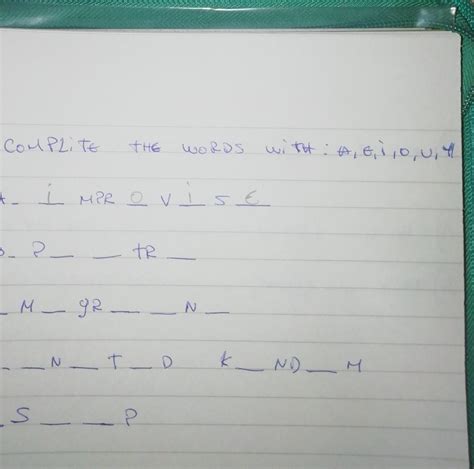 COMPLITE THE WORDS WITH: A, E, i, O, U, Y
A_ i MPR O V i S E
_ P _ _ tR _
_ M _ gR _ _ N _
_ _ N _ T _ D K _ ND _ M
_ S _ _ P